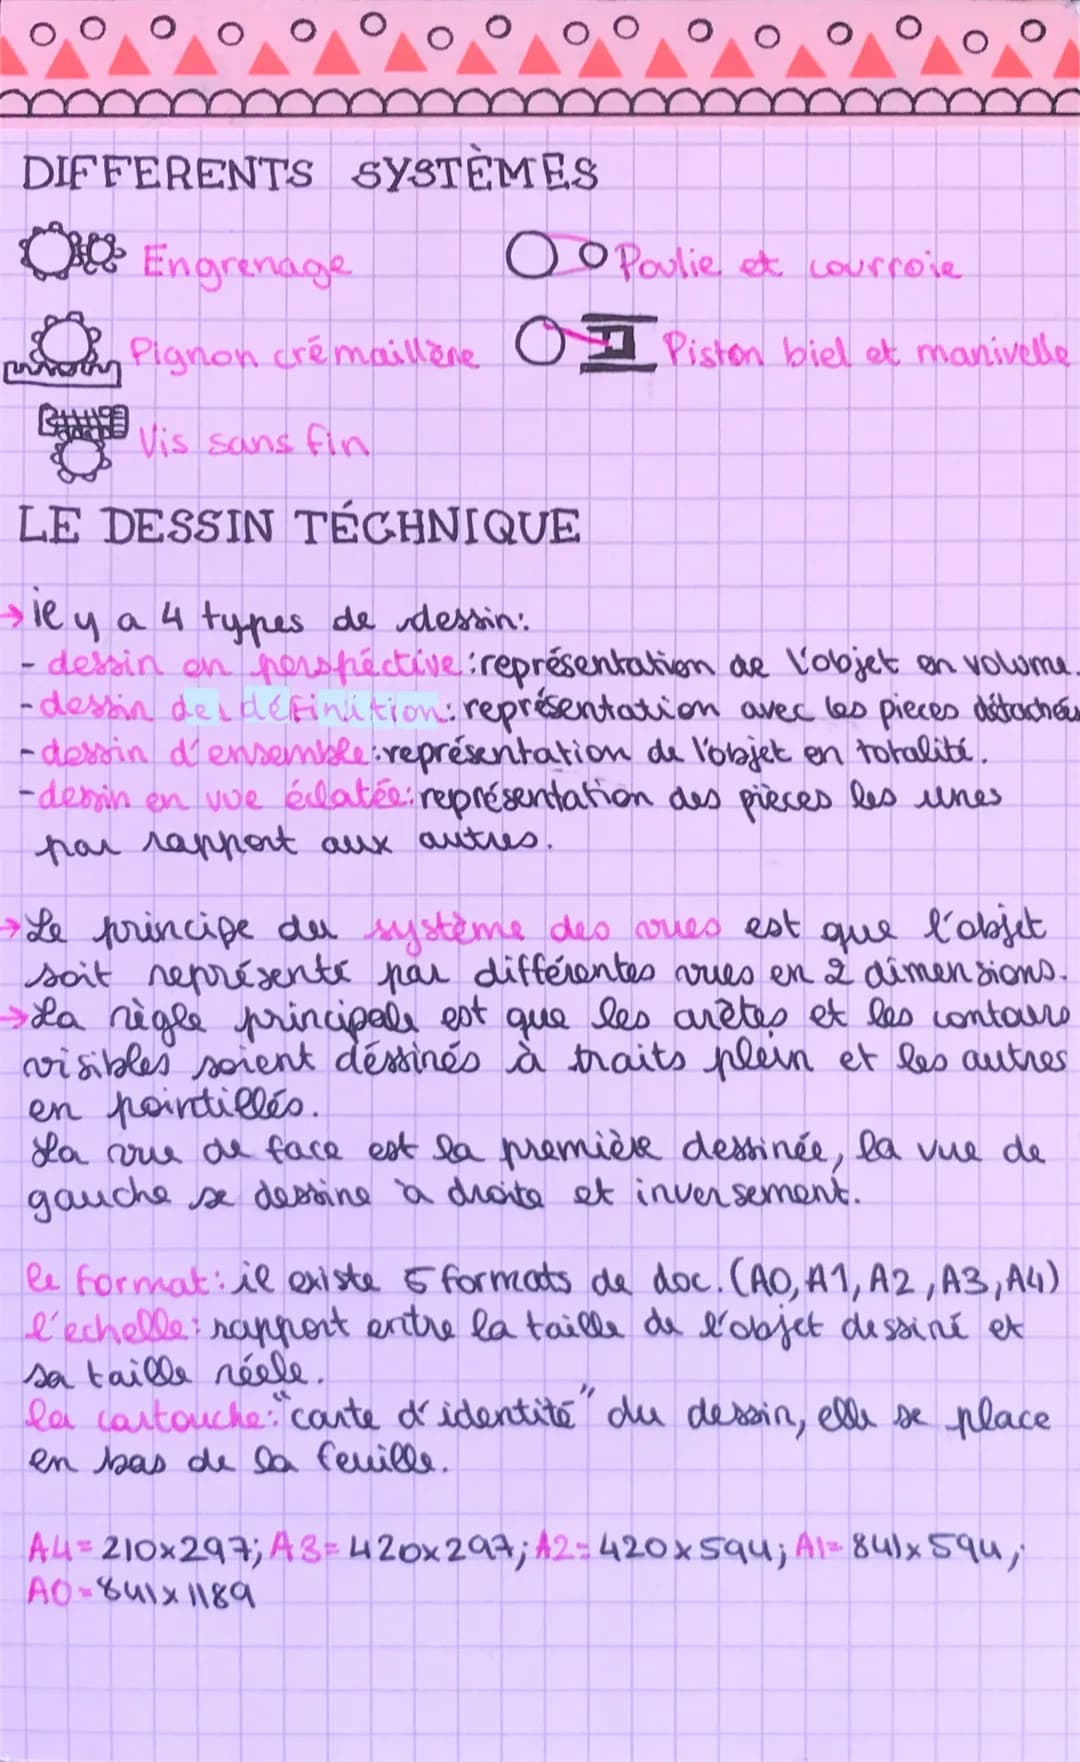 DIFFERENTS SYSTÈMES
Engrenage
Poulie et courroie
Pignon crémaillère
Piston biel et manivelle
Vis sans fin
LE DESSIN TÉCHNIQUE
→ il y a 4 types de dessin:
- dessin en perspéctive: représentation de l'objet en volume.
- dessin de définition: représentation avec les pieces détachées
- dessin d'ensemble: représentation de l'objet en totalité.
- dessin en vue éclatée: représentation des pièces les unes
par rapport aux autres.
→ Le principe du système des vues est que l'objet
soit représenté par différentes vues en 2 dimensions.
→ La règle principale est que les arêtes et les contours
visibles soient déssinés à traits plein et les autres
en pointillés.
La vue de face est la première dessinée, la vue de
gauche se dessine à droite et inversement.
le format: il existe 5 formats de doc. (A0, A1, A2, A3, A4)
l'echelle: rapport entre la taille de l'objet dessiné et
sa taille réele.
la cartouche: "carte d'identité" du dessin, elle se place
en bas de la feuille.
A4= 210x297; A3= 420x297; A2= 420x594; A1= 841x594;
A0= 841x1189